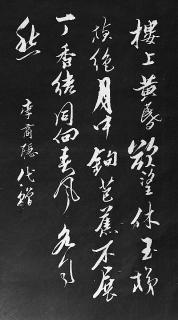 樓上黄昏欲望休玉梯
横絶月中鈎芭蕉不展
丁香结同向春風各自
愁
李商隱代贈